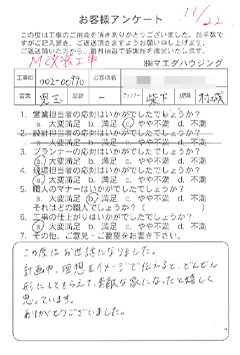 11/22
お客様アンケート
この度は工事のご用命を頂きありがとうございました。お手数で
すがご記入頂き、ご返送頂きますようお願い申し上げます。
ご返送頂いた方から、毎月抽選で感謝品を進呈いたします。
㈱マエダハウジング
工事ID
お客様名
様
営業 児玉 設計 － プランナー 柴下 現場 村城
1. 営業担当者の対応はいかがでしたでしょうか?
a. 大変満足 b. 満足 c. やや不満 d. 不満
2. 設計担当者の対応はいかがでしたでしょうか?
a. 大変満足 b. 満足 c. やや不満 d. 不満
3. プランナーの対応はいかがでしたでしょうか?
a. 大変満足 b. 満足 c. やや不満 d. 不満
4. 現場担当者の対応はいかがでしたでしょうか?
a. 大変満足 b. 満足 c. やや不満 d. 不満
5. 職人のマナーはいかがでしたでしょうか?
a. 大変満足 b. 満足 c. やや不満 d. 不満
それはどの職人でしょうか?( )
6. 工事の仕上がりはいかがでしたでしょうか?
a. 大変満足 b. 満足 c. やや不満 d. 不満
7. その他、ご意見・ご要望をお書き下さい。
この度はお世話になりました。
計画中、理想をイメージで伝えると、どんどん
形にしてもらえて、素敵な家になったと嬉しく
思っています。
ありがとうございました。